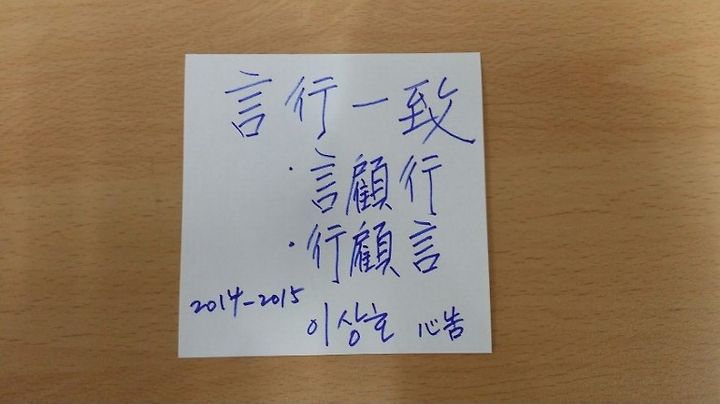 言行一致
·言顧行
·行顧言
2014-2015
이상호 心告